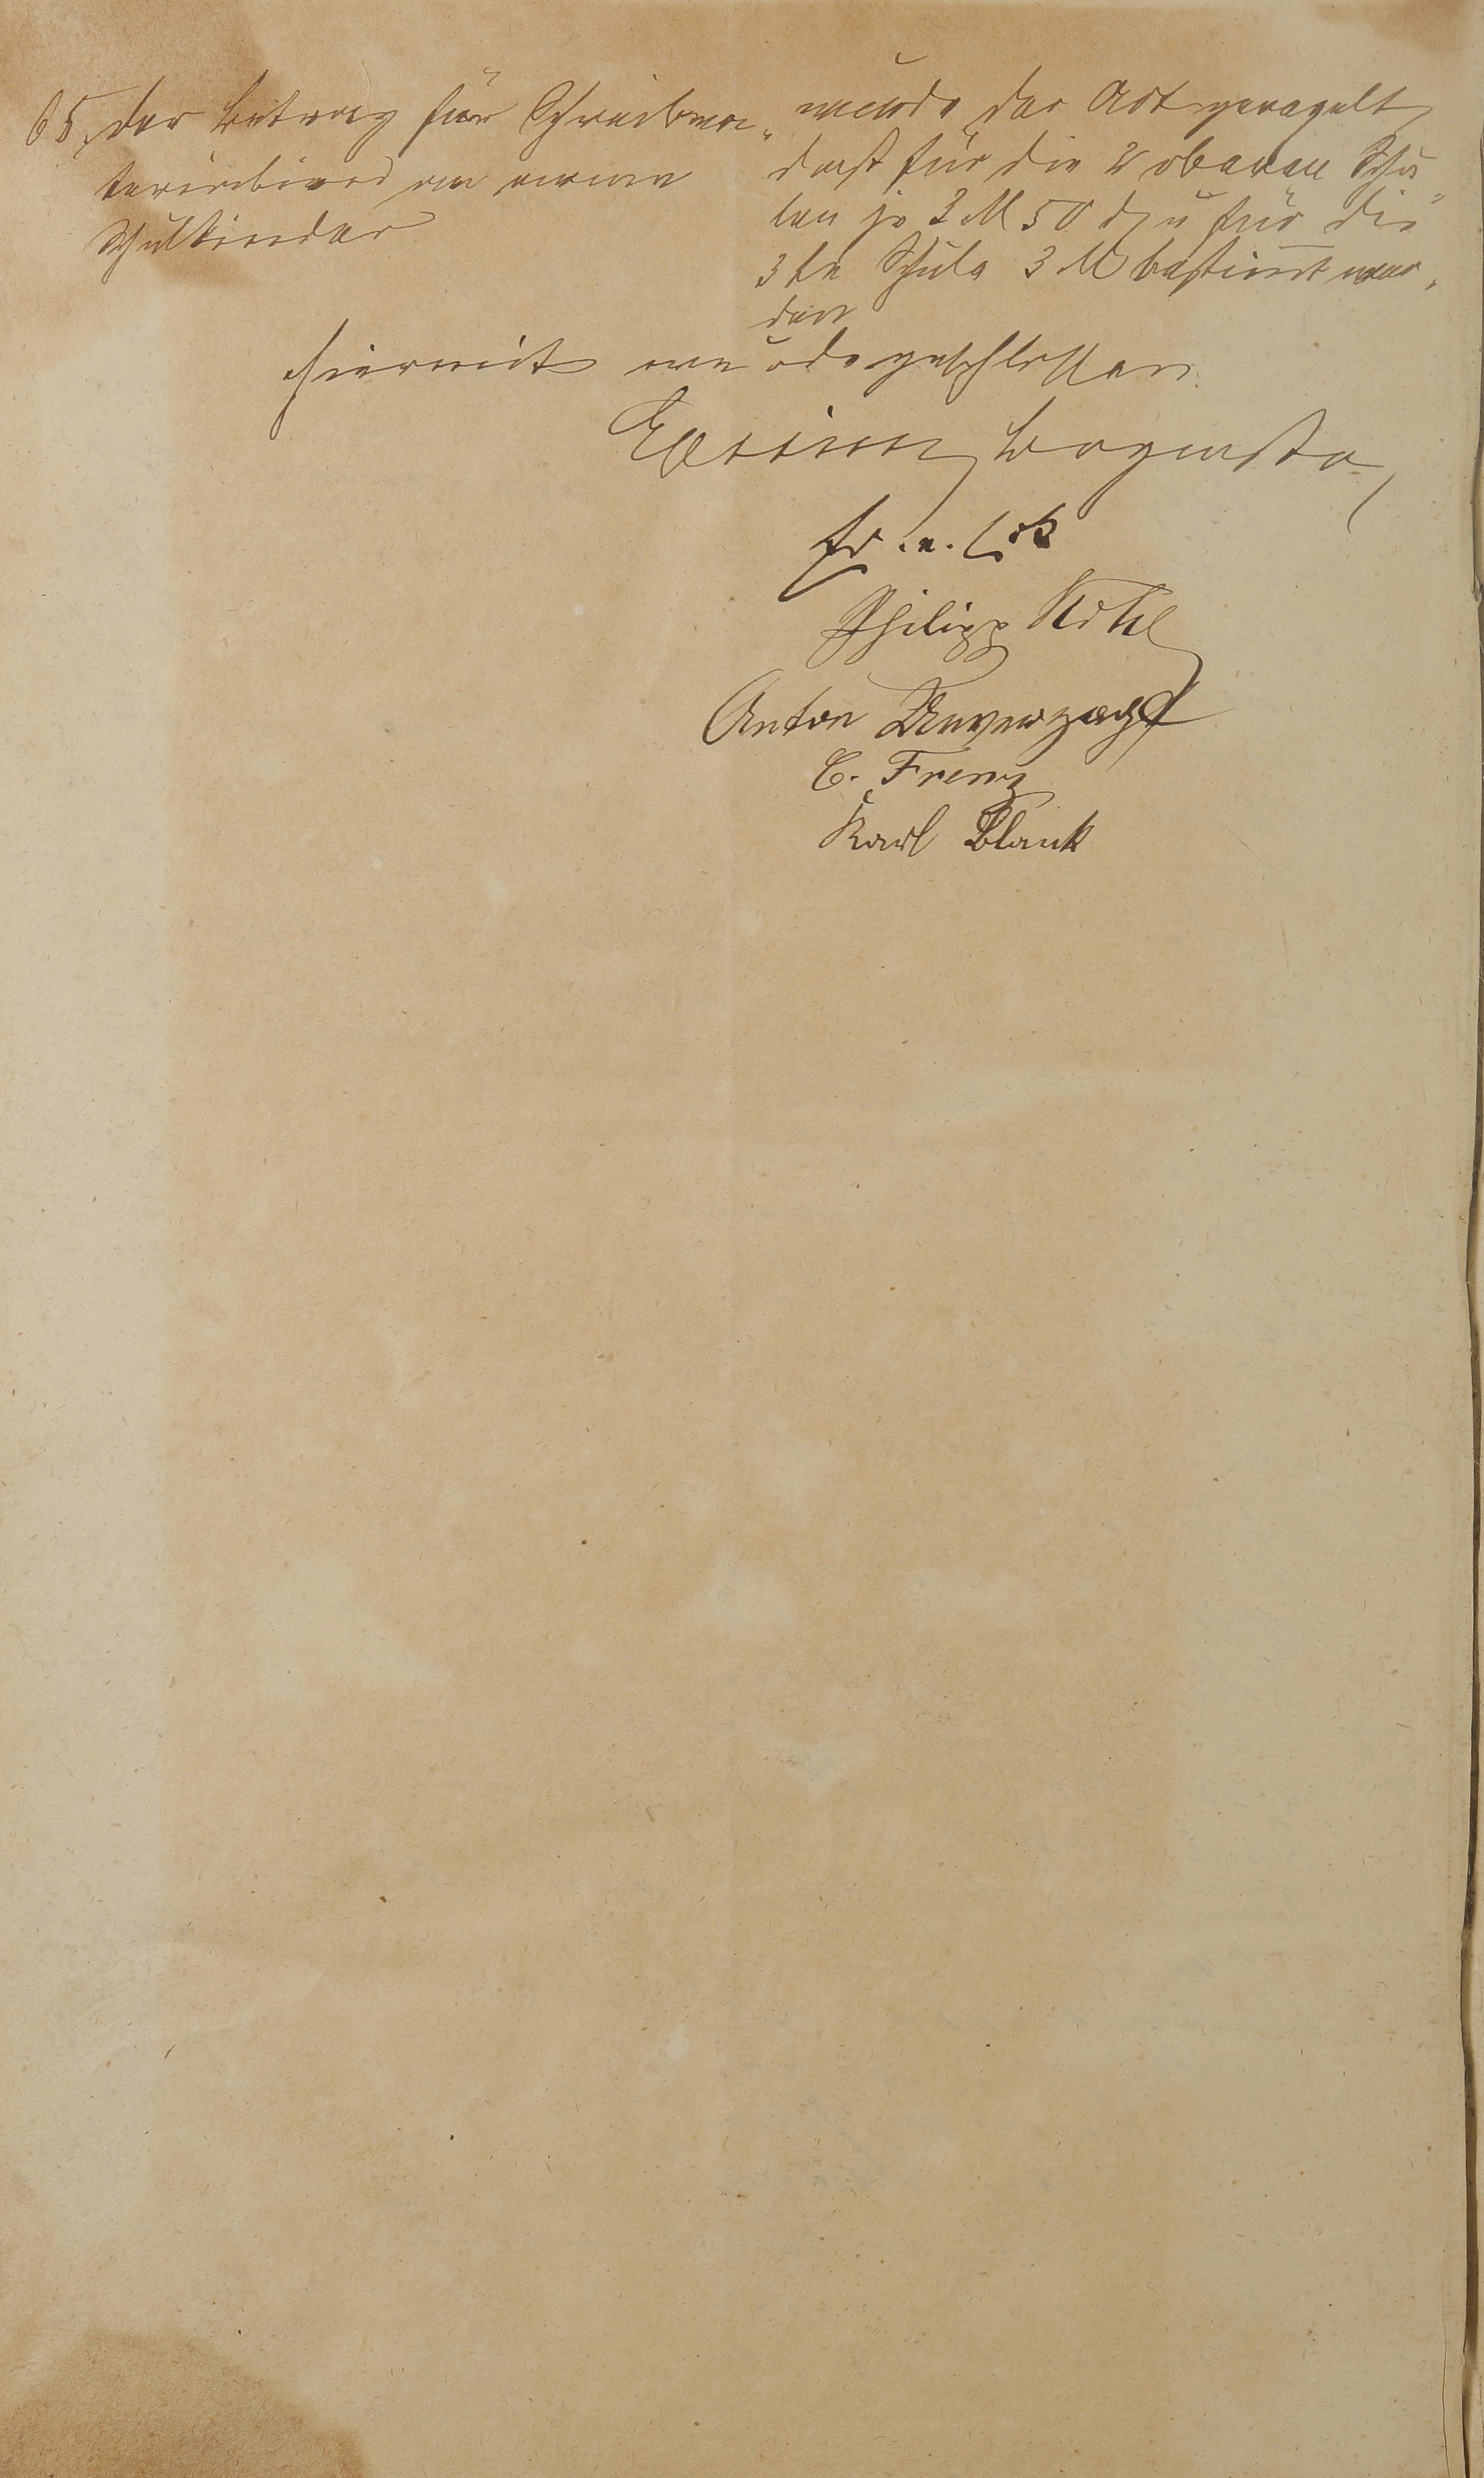 65, der Betrag für Schreibma„
terialien an arme
Schulkinder
wurde der Art geregelt
daß für die 2 oberen Schu„
len je 3 M 50 d u für die
3te Schule 3 M bestimt wur„
den
Hiermit wurde geschlossen.
Bürgmstr
Philipp
Anton Unverzagt
C. Frenz
Karl Blank